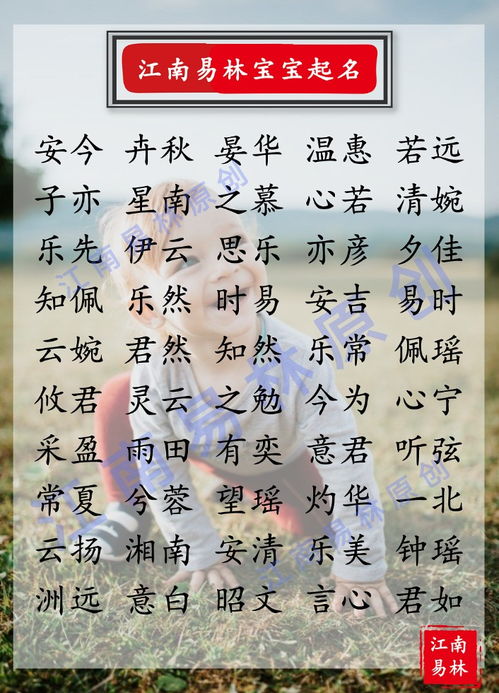 江南易林宝宝起名
安今 卉秋 晏华 温惠 若远
子亦 星南 之慕 心若 清婉
乐先 伊云 思乐 亦彦 夕佳
知佩 乐然 时易 安吉 易时
云婉 君然 知然 乐常 佩瑶
攸君 灵云 之勉 今为 心宁
采盈 雨田 有奕 意君 听弦
常夏 兮蓉 望瑶 灼华 一北
云扬 湘南 安清 乐美 钟瑶
洲远 意白 昭文 言心 君如
江南易林原创
江南易林原创
江南易林原创
江南
易林